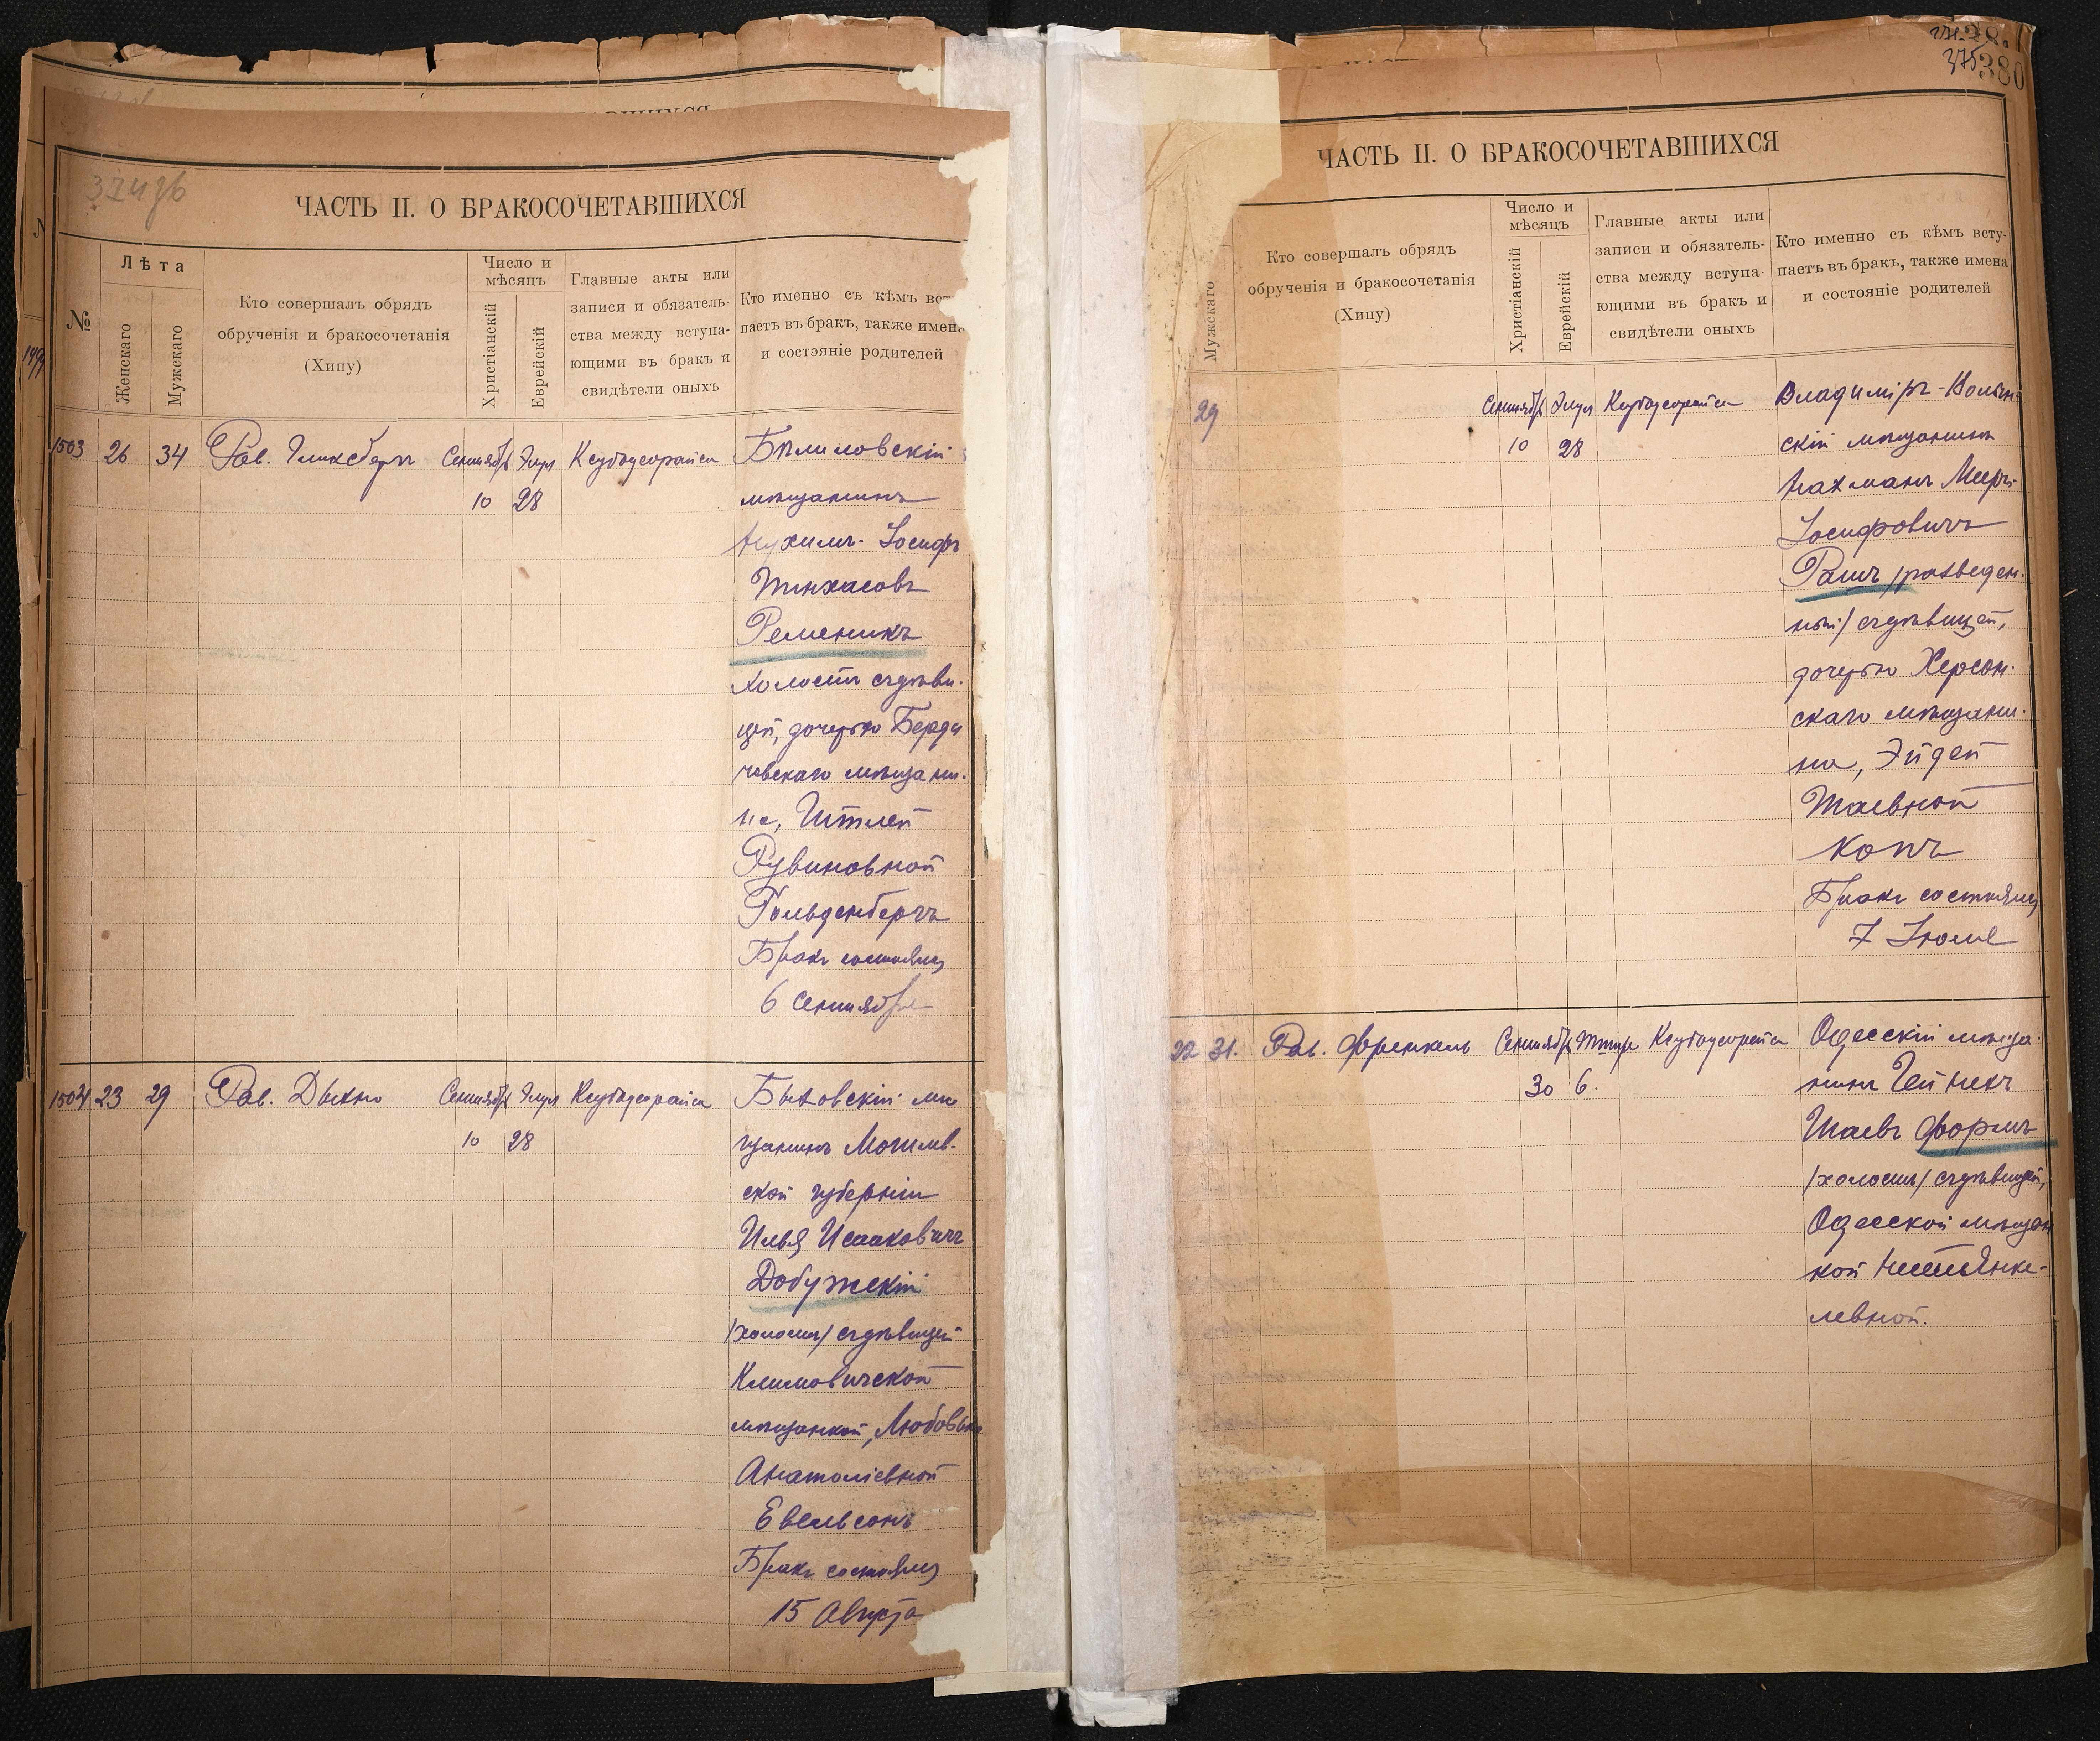 ЧАСТЬ II. О БРАКОСОЧЕТАВШИХСЯ
№
Лѣта
Женскаго
Мужскаго
Кто совершалъ обрядъ
обрученія и бракосочетанія
(Хипу)
Число и
мѣсяцъ
Христіанскій
Еврейскій
Главные акты или
записи и обязатель-
ства между вступа-
ющими въ бракъ и
свидѣтели оныхъ
Кто именно съ кѣмъ вст
паетъ въ бракъ, также имена
и состояніе родителей
1503 26 34 Рав. Гликсбергъ Сентябрь Элул Ксубоусерайса Бѣлиловскій
10 28 мѣщанинъ
Нухимъ-Іосифъ
Пинхасовъ
Ременикъ
холостъ съ дѣви-
цей, дочерью Берди
човскаго мѣщани-
на, Итлей
Рувиновной
Гольденбергъ
Бракъ состоялся
6 Сентября
1504 23 29 Рав. Дыхно Сентябрь Элул Ксубоусерайса Быховскій мѣ
щанинъ Могилев-
ской губерніи
Илья Исааковичъ
Добужскій
/холостъ/ съ дѣвицей
Климовичской
мѣщанкой, Любовью
Анатоліевной
Евельсонъ
Бракъ состоялся
15 Августа
375 380
ЧАСТЬ II. О БРАКОСОЧЕТАВШИХСЯ
Мужскаго
Кто совершалъ обрядъ
обрученія и бракосочетанія
(Хипу)
Число и
мѣсяцъ
Христіанскій
Еврейскій
Главные акты или
записи и обязатель-
ства между вступа-
ющими въ бракъ и
свидѣтели оныхъ
Кто именно съ кѣмъ всту-
паетъ въ бракъ, также имена
и состояніе родителей
29 Сентябрь Элул Ксубоусерайса Владиміръ-Волын-
10 28 скій мѣщанинъ
Нахманъ Мееръ-
Іосифовичъ
Рашъ /разведен-
ный/ съ дѣвицей,
дочерью Херсон-
скаго мѣщани-
на, Эйдей
Шаевной
Копъ
Бракъ состоялся
7 Іюля
22 31. Рав. Френкель Сентябрь Тишри Ксубоусерайса Одесскій мѣща-
30 6. нинъ Гейнехъ
Шаевъ Формъ
/холостъ/ съ дѣвицей,
Одесской мѣщан
кой Нехей Янке-
левной.